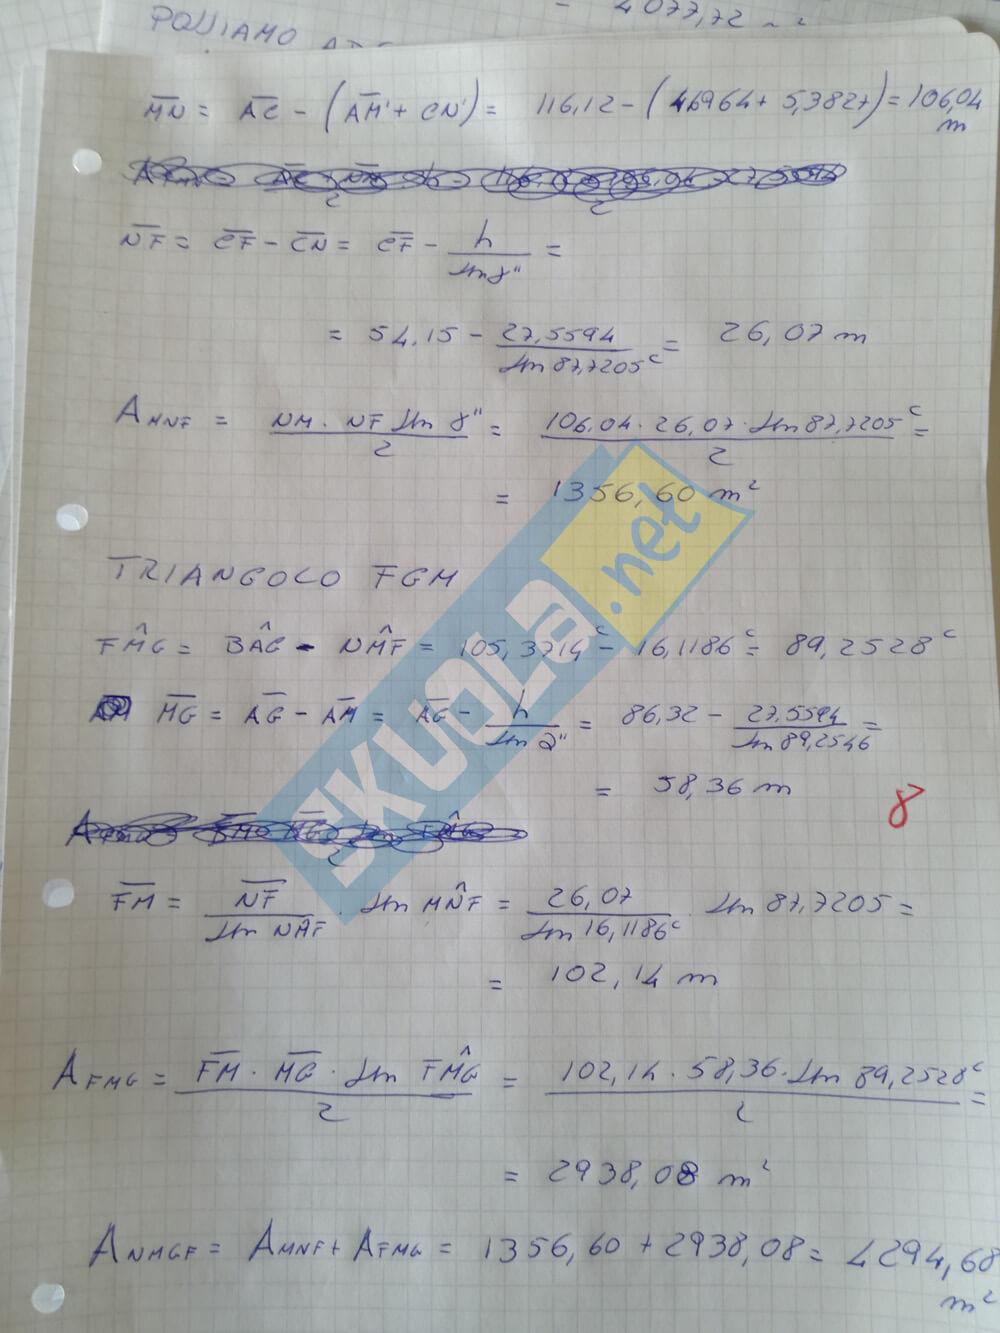 4077,72 m²
PONIAMO
M̅N̅ = A̅C̅ - (A̅M̅' + CN') = 116,12 - (4,6964 + 5,3827) = 106,04
m
N̅F̅ = C̅F̅ - C̅N̅ = C̅F̅ - h / sin γ" =
= 54,15 - 27,5594 / sin 87,7205ᶜ = 26,07 m
A MNF = NM · NF sin γ" / 2 = 106,04 · 26,07 · sin 87,7205ᶜ / 2 =
= 1356,60 m²
TRIANGOLO FGM
FM̂G = BÂC - NM̂F = 105,3714ᶜ - 16,1186ᶜ = 89,2528ᶜ
M̅G̅ = A̅G̅ - A̅M̅ = A̅G̅ - h / sin α" = 86,32 - 27,5594 / sin 89,2546 =
= 58,36 m
8
F̅M̅ = N̅F̅ / sin NÂF · sin MN̂F = 26,07 / sin 16,1186ᶜ · sin 87,7205 =
= 102,14 m
A FMG = F̅M̅ · M̅G̅ · sin FM̂G / 2 = 102,14 · 58,36 · sin 89,2528ᶜ / 2 =
= 2938,08 m²
A NMGF = A MNF + A FMG = 1356,60 + 2938,08 = 4294,68
m²
SKUOLA.net